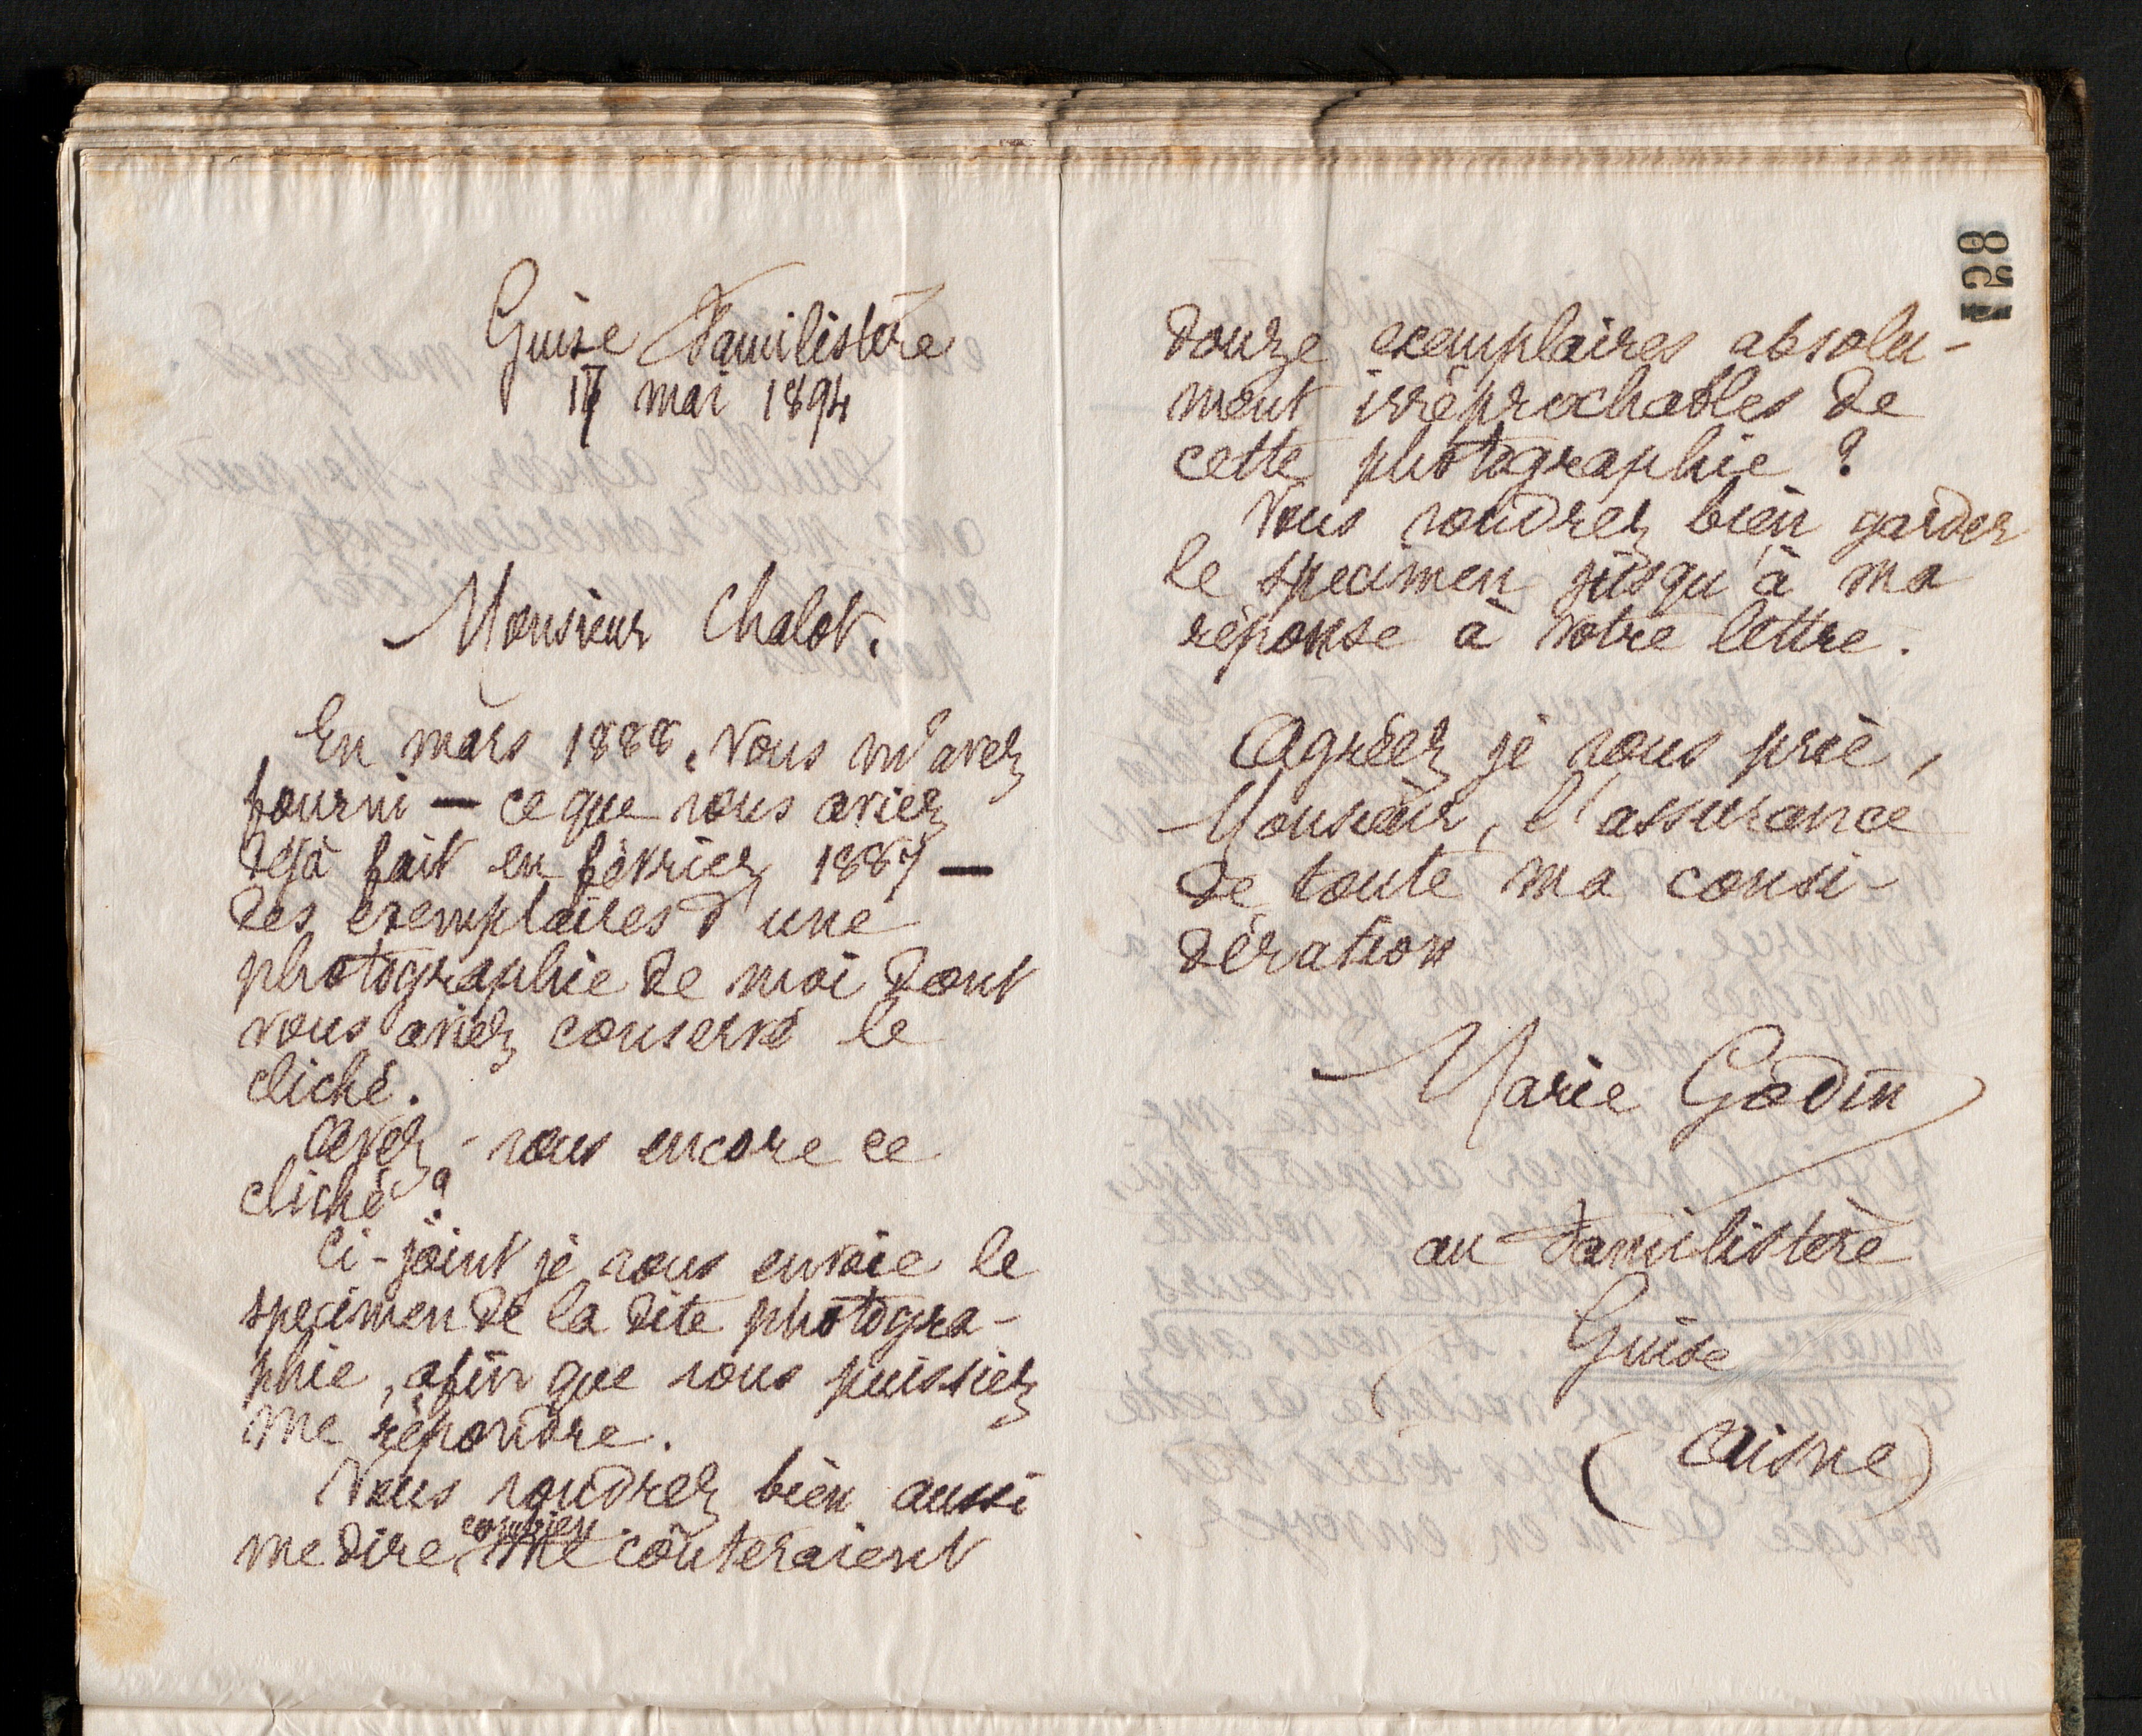 Guise Familistère
17 mai 1894
Monsieur Chalot.
En mars 1888, vous m'avez
fourni — ce que vous aviez
déjà fait en février 1887 —
des exemplaires d'une
photographie de moi dont
vous aviez conservé le
cliché.
Avez-vous encore ce
cliché ?
Ci-joint je vous envoie le
specimen de la dite photogra-
phie, afin que vous puissiez
me répondre.
Vous voudrez bien aussi
combien
me dire me coûteraient
128
douze exemplaires absolu-
ment irréprochables de
cette photographie ?
Vous voudrez bien garder
le specimen jusqu'à ma
réponse à votre lettre.
Agréez je vous prie,
Monsieur, l'assurance
de toute ma consi-
dération
Marie Godin
au Familistère
Guise
(Aisne)